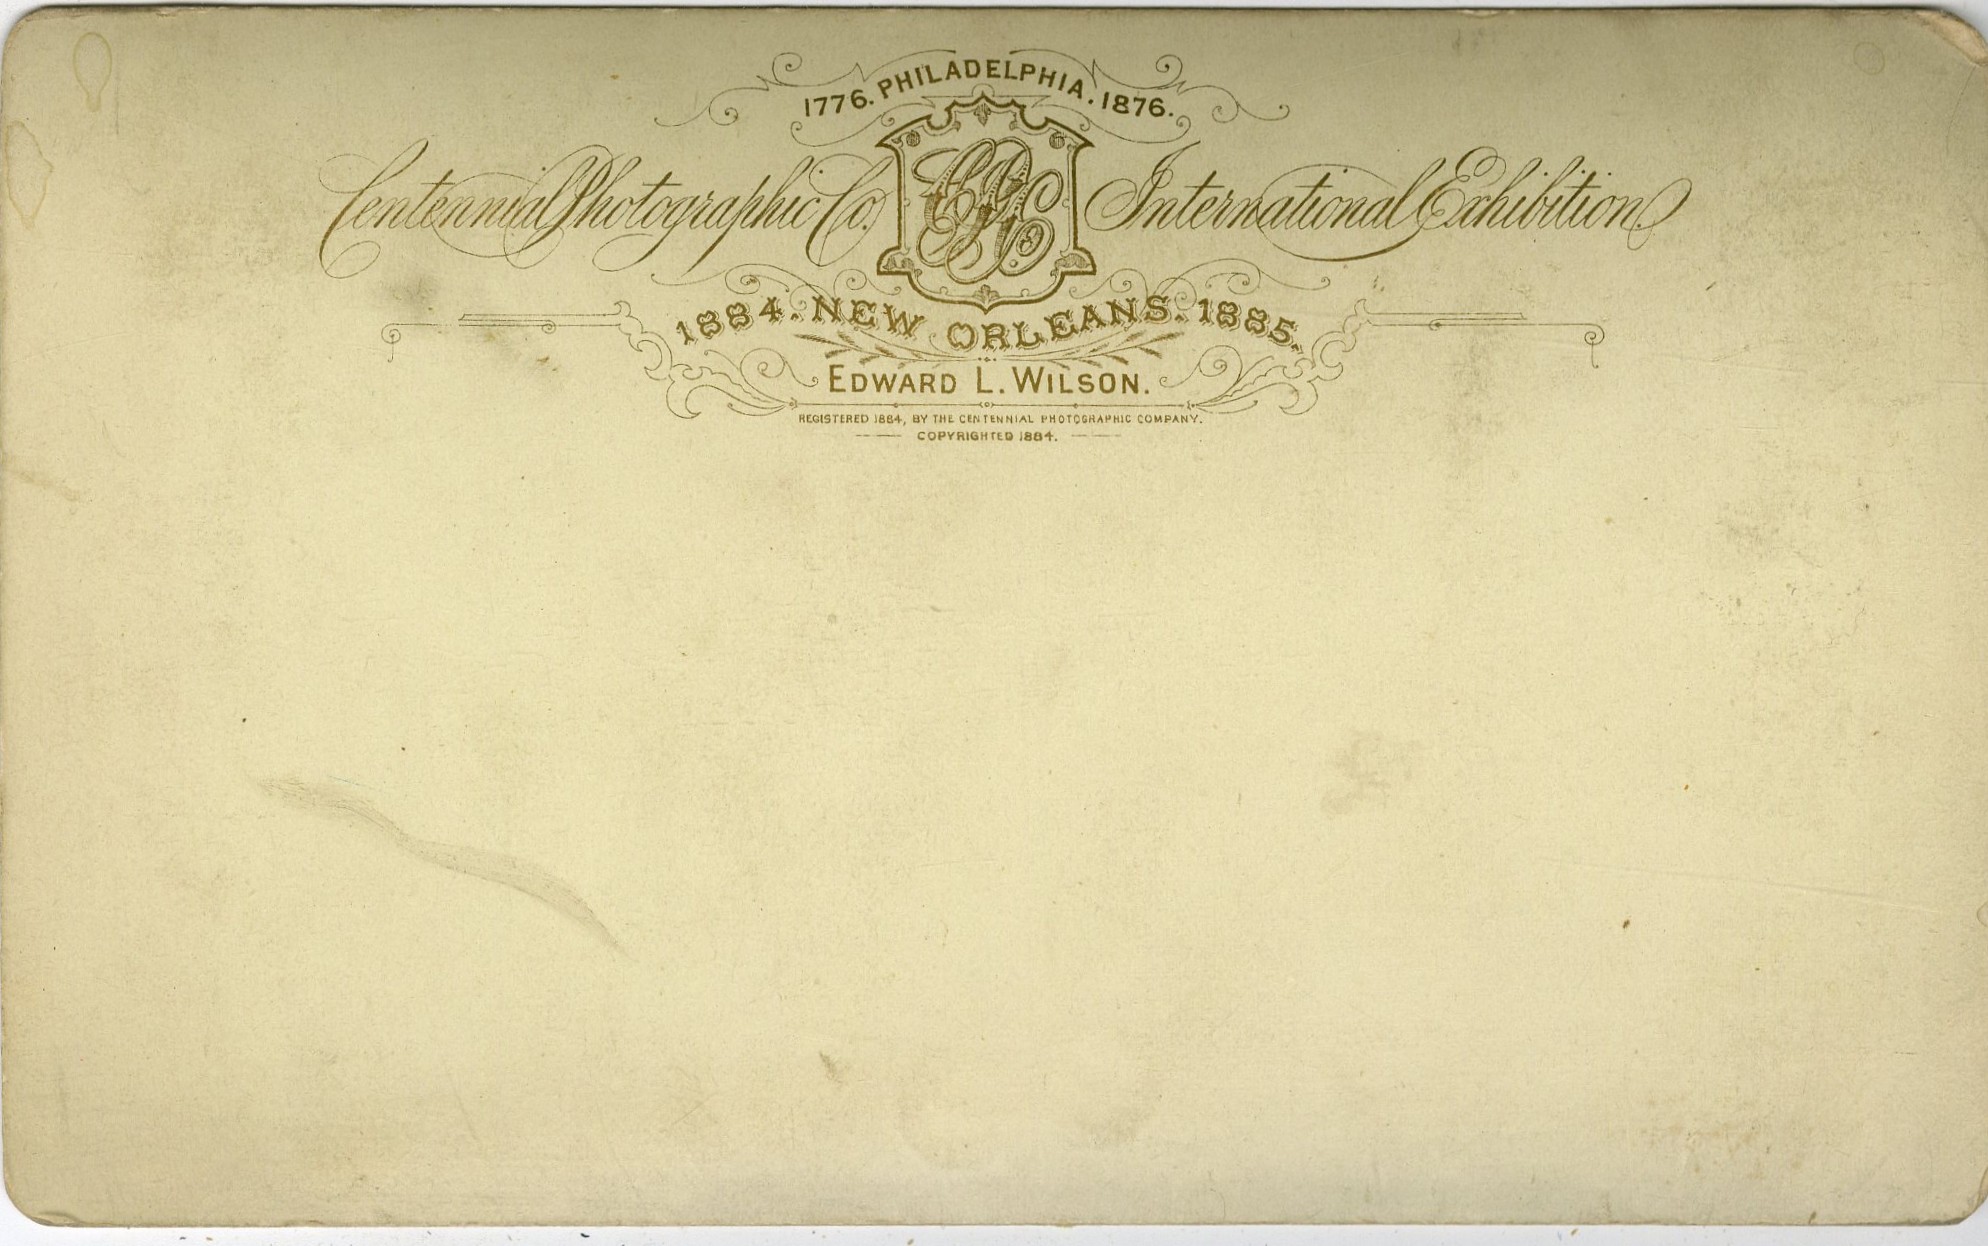 1776. PHILADELPHIA. 1876.
Centennial Photographic Co. International Exhibition.
1884. NEW ORLEANS. 1885.
EDWARD L. WILSON.
REGISTERED 1884, BY THE CENTENNIAL PHOTOGRAPHIC COMPANY.
COPYRIGHTED 1884.